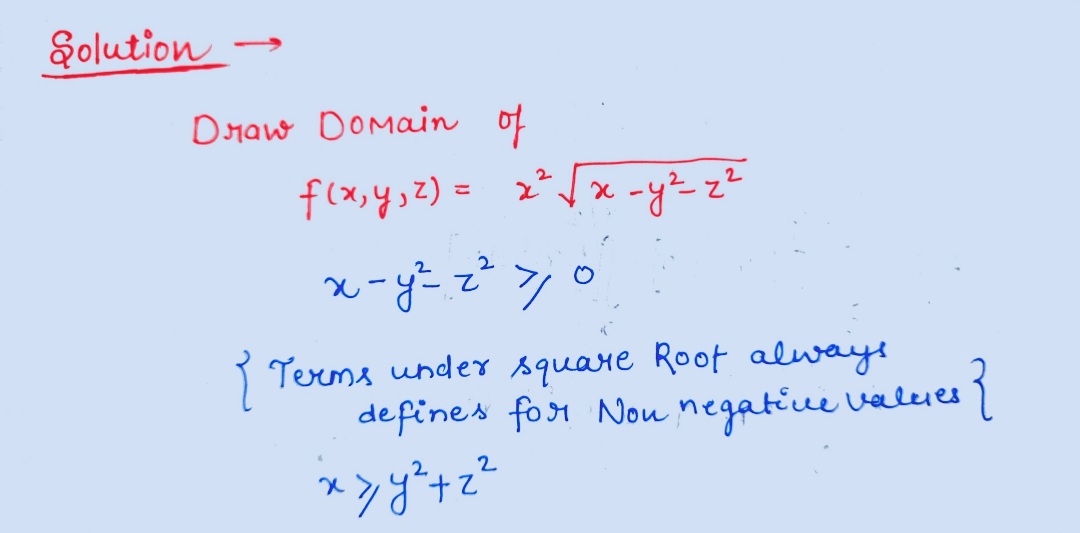 Solution →
Draw Domain of
f(x,y,z) = x² √(x - y² - z²)
x - y² - z² ⩾ 0
{ Terms under square Root always
defines for Non negative values }
x ⩾ y² + z²